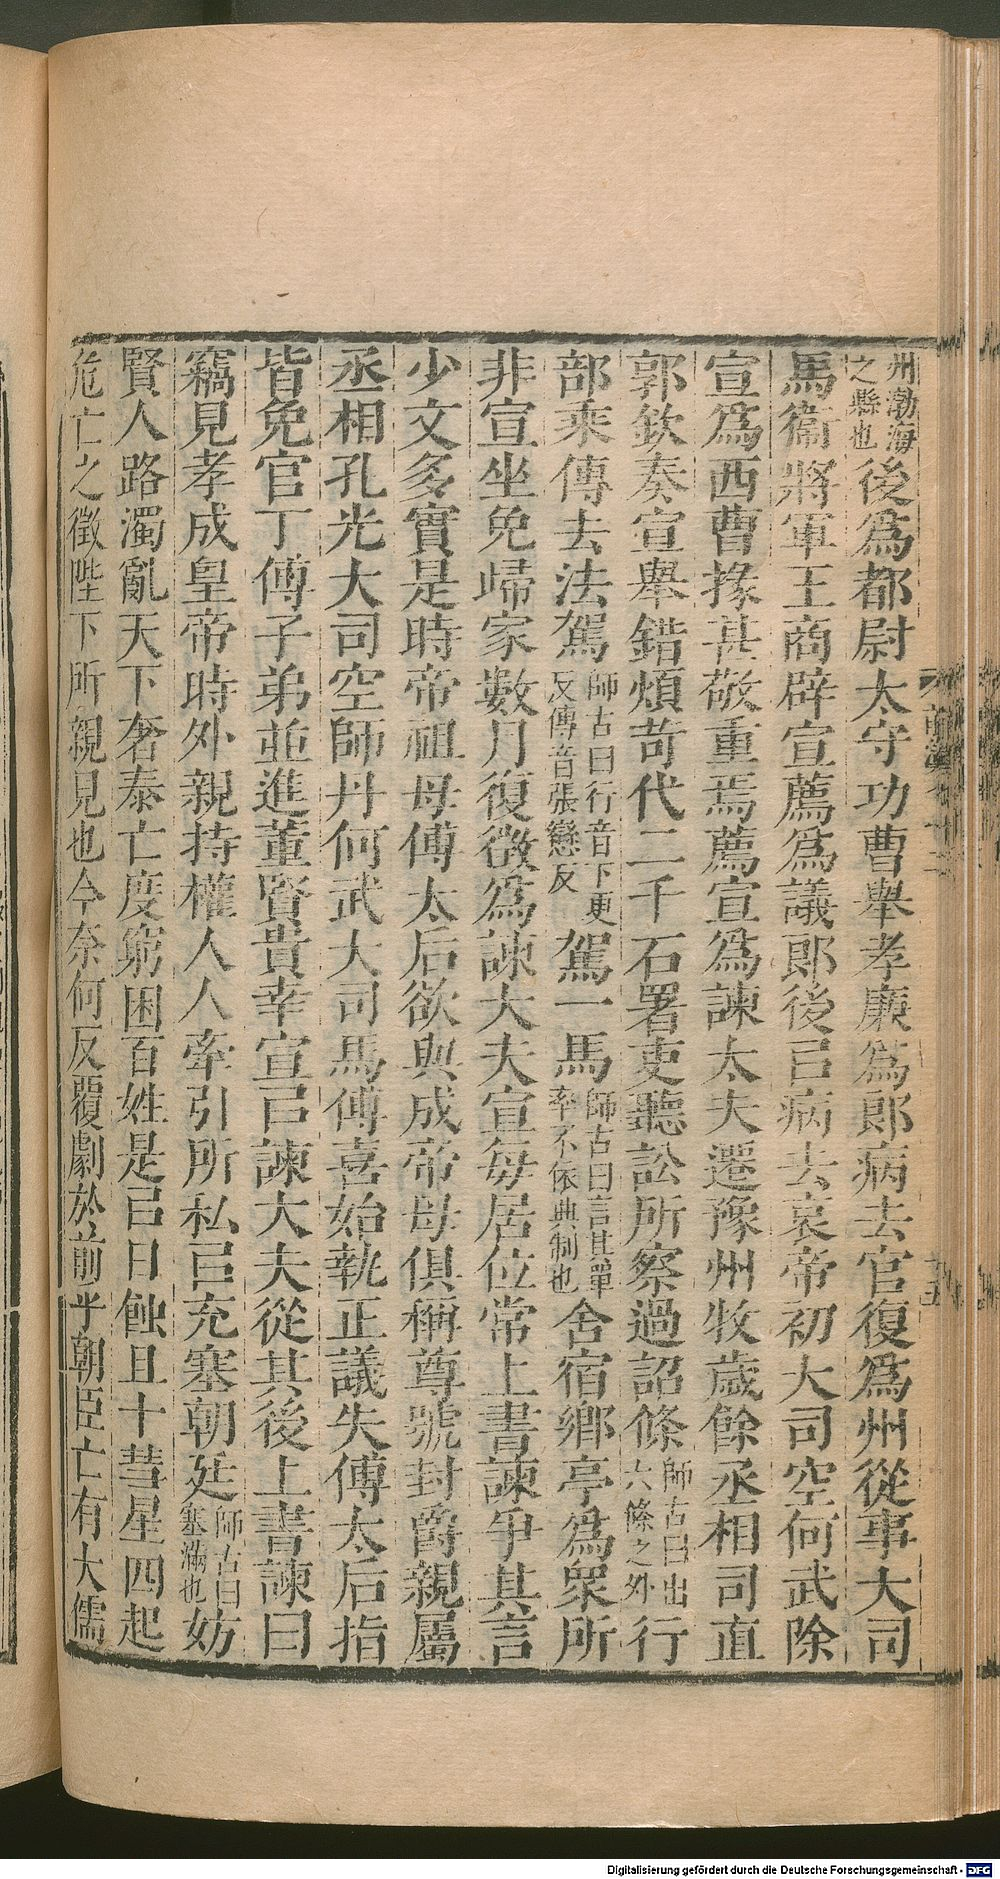 州渤海之縣也後爲都尉太守功曹舉孝廉爲郎病去官復爲州從事大司
馬衞將軍王商辟宣薦爲議郎後㠯病去哀帝初大司空何武除
宣爲西曹掾甚敬重焉薦宣爲諫大夫遷豫州牧歲餘丞相司直
郭欽奏宣舉錯煩苛代二千石署吏聽訟所察過詔條師古曰出六條之外行
部乘傳去法駕師古曰行音下更反傳音張戀反駕一馬師古曰言其單率不依典制也舍宿鄉亭爲衆所
非宣坐免歸家數月復徵爲諫大夫宣每居位常上書諫爭其言
少文多實是時帝祖母傅太后欲與成帝母俱稱尊號封爵親屬
丞相孔光大司空師丹何武大司馬傅喜始執正議失傅太后指
皆免官丁傅子弟並進董賢貴幸宣㠯諫大夫從其後上書諫曰
竊見孝成皇帝時外親持權人人牽引所私㠯充塞朝廷師古曰塞滿也妨
賢人路濁亂天下奢泰亡度窮困百姓是㠯日蝕且十彗星四起
危亡之徵陛下所親見也今奈何反覆劇於前乎朝臣亡有大儒
前漢
Digitalisierung gefördert durch die Deutsche Forschungsgemeinschaft - DFG